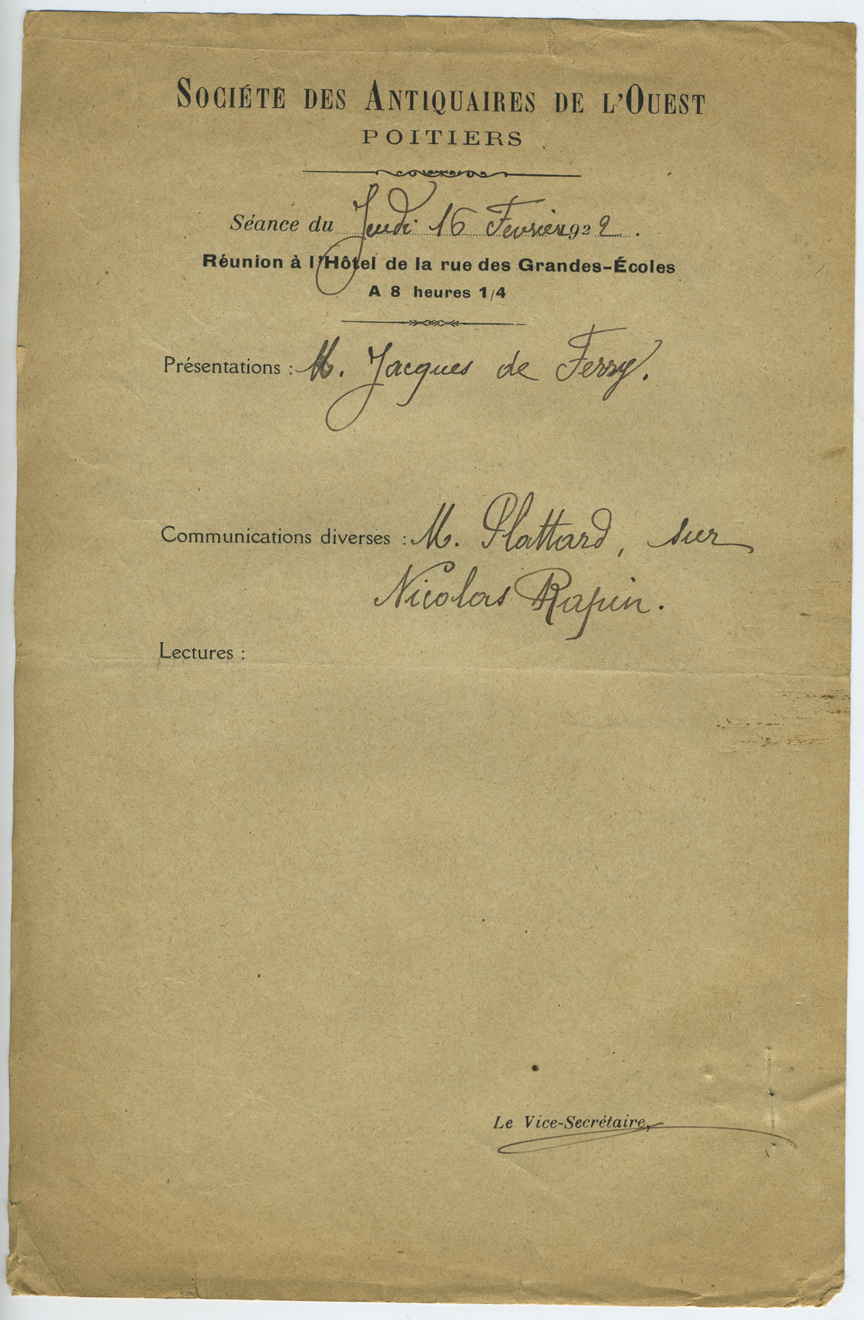 SOCIÉTÉ DES ANTIQUAIRES DE L'OUEST
POITIERS
Séance du Jeudi 16 Fevrier 1922.
Réunion à l'Hôtel de la rue des Grandes-Écoles
A 8 heures 1/4
Présentations : M. Jacques de Ferry.
Communications diverses : M. Plattard, sur
Nicolas Rapin.
Lectures :
Le Vice-Secrétaire,